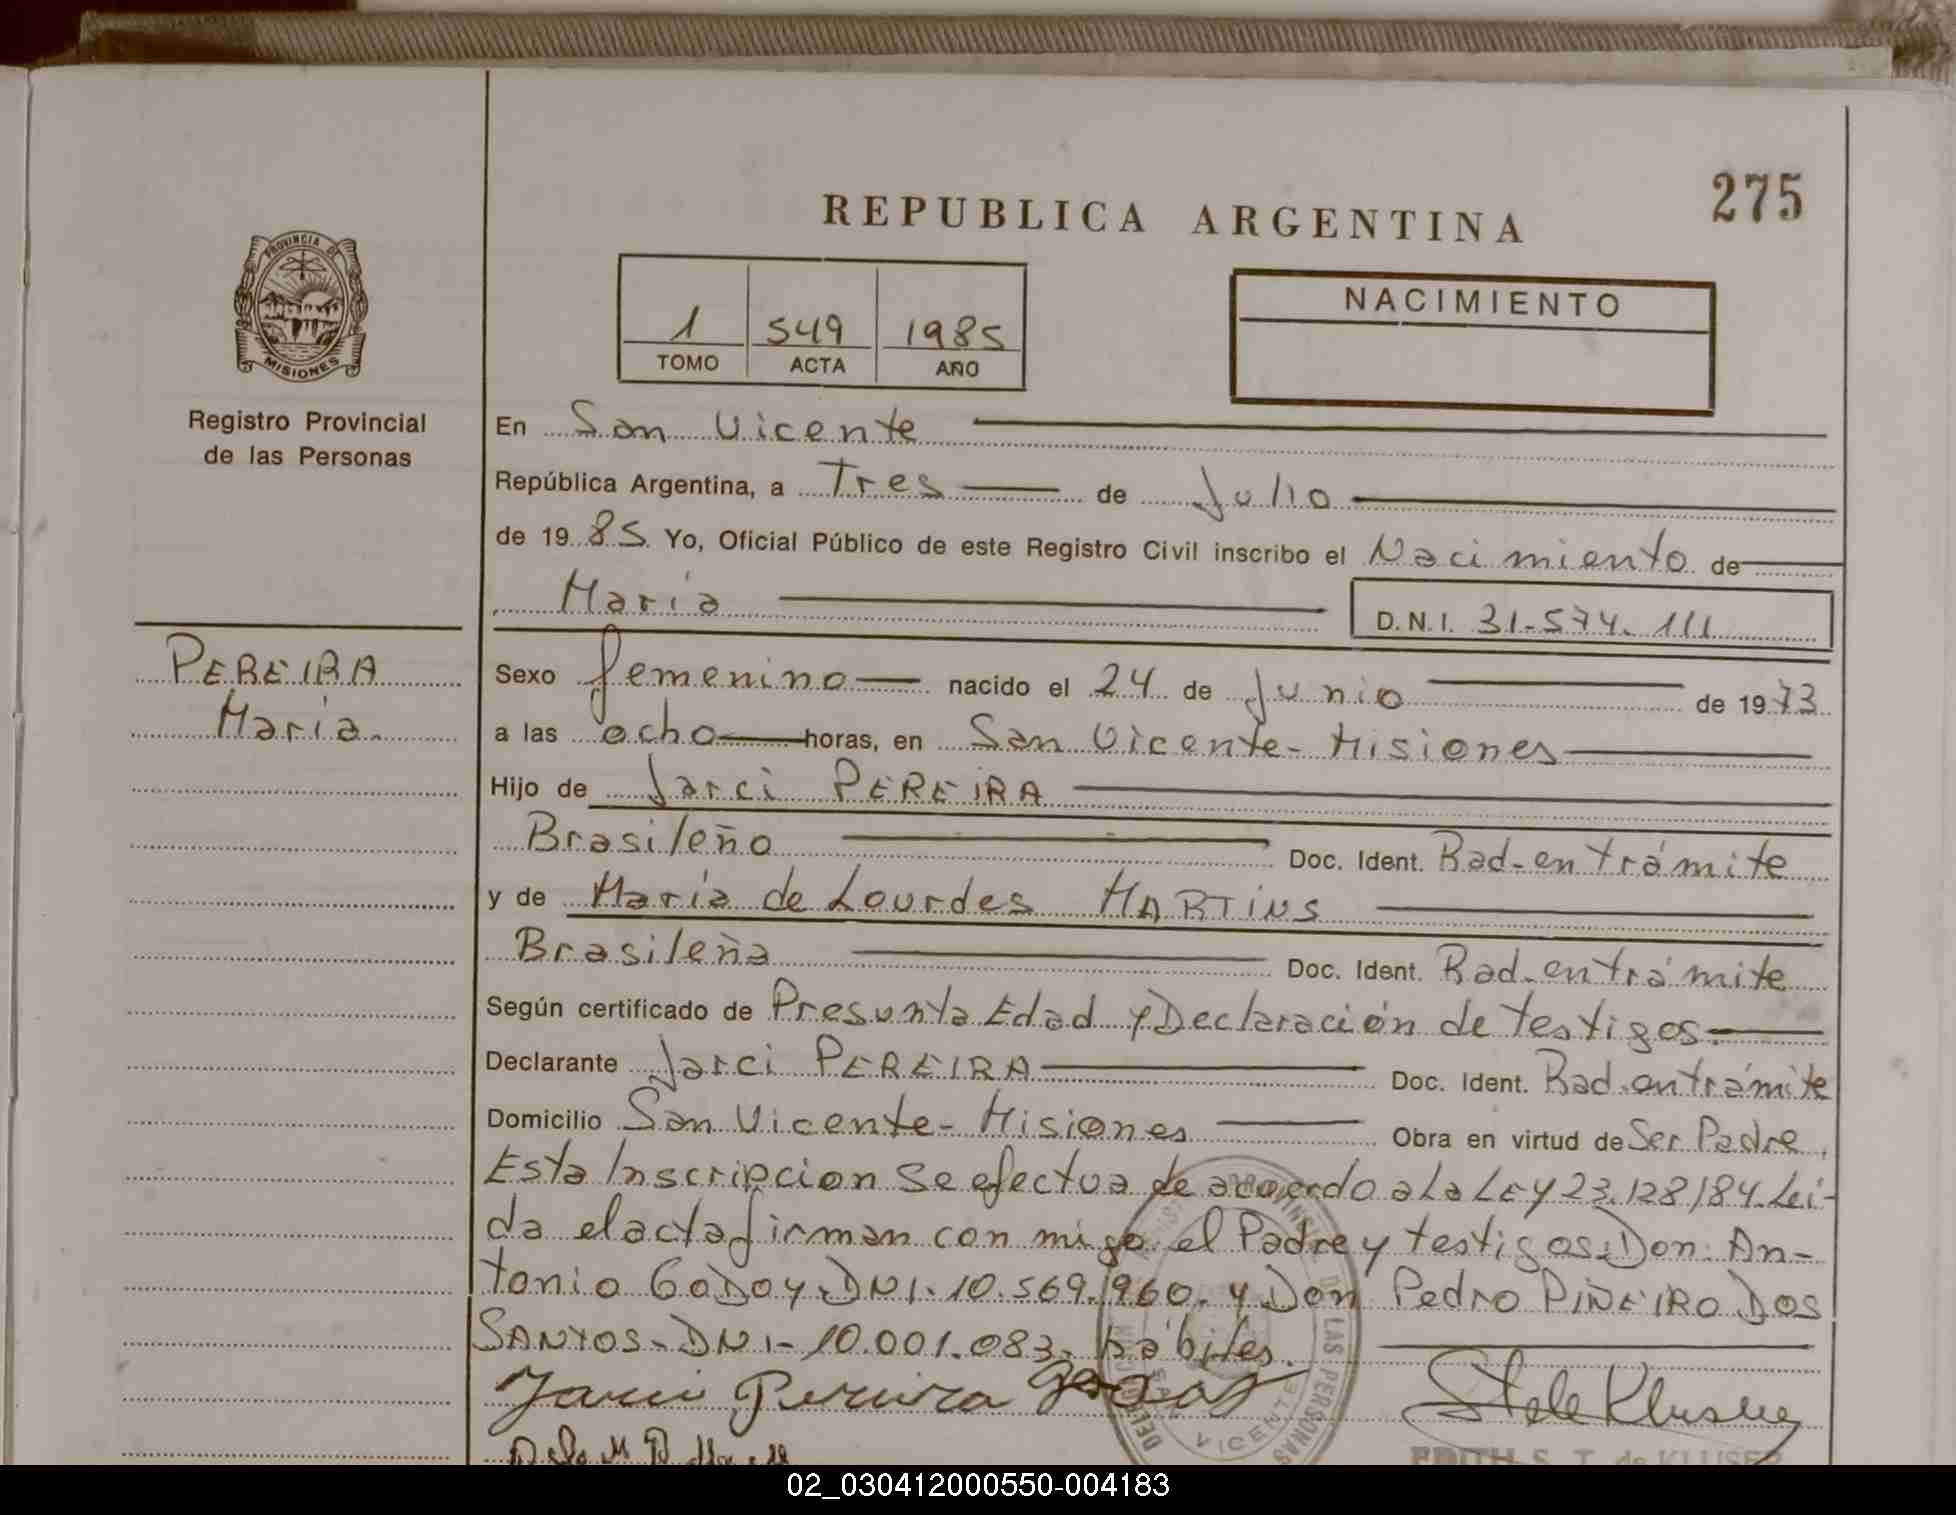 275
REPUBLICA ARGENTINA
PROVINCIA DE
MISIONES
Registro Provincial
de las Personas
1 549 1985
TOMO ACTA AÑO
NACIMIENTO
En San Vicente
República Argentina, a Tres de Julio
de 1985 Yo, Oficial Público de este Registro Civil inscribo el Nacimiento de
María
D.N.I. 31-574.111
PEREIRA
María.
Sexo femenino nacido el 24 de Junio de 1973
a las ocho horas, en San Vicente - Misiones
Hijo de Jarci PEREIRA
Brasileño Doc. Ident. Rad-en trámite
y de María de Lourdes MARTiNS
Brasileña Doc. Ident. Rad-en trámite
Según certificado de Presunta Edad y Declaración de testigos.
Declarante Jarci PEREIRA Doc. Ident. Rad.en trámite
Domicilio San Vicente - Misiones Obra en virtud de Ser Padre.
Esta Inscripcion se efectua de acuerdo a la LEY 23.128/84. Lei-
da el acta firman con migo el Padre y testigos: Don: An-
tonio GODOY DNI. 10.569.960. y Don Pedro PIÑEIRO DOS
SANTOS - DNI - 10.001.083. hábiles.
Jarci Pereira
VICENTE
DE LAS PERSONAS
EDITH S. T. de KLUSER
02_030412000550-004183